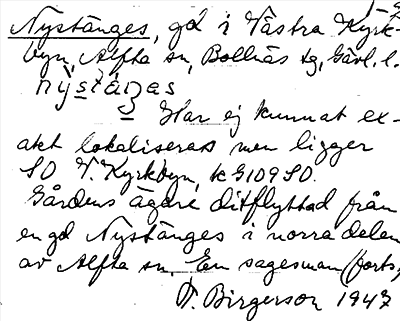 Nystänges, gd i Västra Kyrk-
byn, Alfta sn, Bollnäs tg, Gävl. l.
nystäŋas
Har ej kunnat ex-
akt lokaliseras men ligger
SO V. Kyrkbyn, k G109 SO.
Gårdens ägare ditflyttad från
en gd Nystänges i norra delen
av Alfta sn. En sagesman (forts,
T. Birgerson 1947